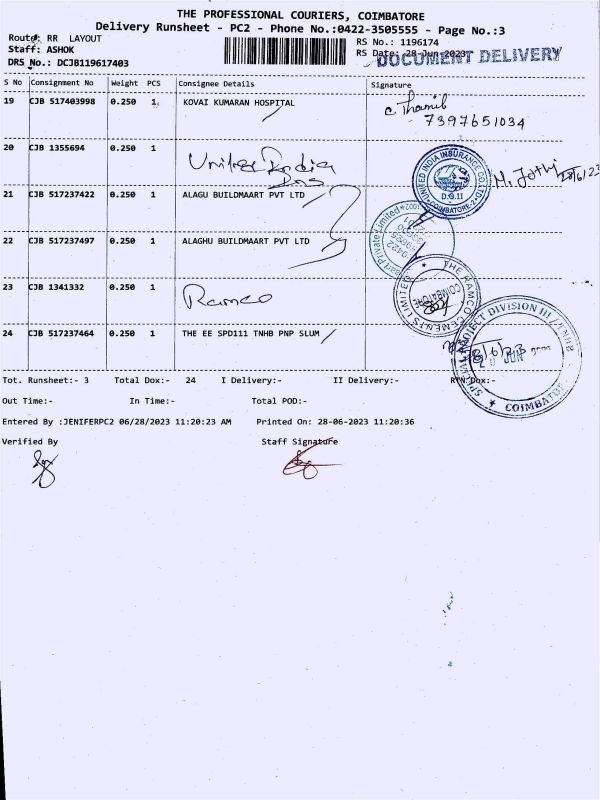 THE PROFESSIONAL COURIERS, COIMBATORE
Delivery Runsheet - PC2 - Phone No.:0422-3505555 - Page No.:3
Route: RR LAYOUT
RS No.: 1196174
Staff: ASHOK
RS Date: 28-Jun-2023
DOCUMENT DELIVERY
DRS No.: DCJB119617403
S No Consignment No Weight PCS Consignee Details Signature
19 CJB 517403998 0.250 1 KOVAI KUMARAN HOSPITAL
7397651034
20 CJB 1355694 0.250 1 United India
UNITED INDIA INSURANCE CO.LTD. COIMBATORE-2
D.O.II
M. Jothi 28/6/23
21 CJB 517237422 0.250 1 ALAGU BUILDMAART PVT LTD
22 CJB 517237497 0.250 1 ALAGHU BUILDMAART PVT LTD
23 CJB 1341332 0.250 1 Ramco
THE RAMCO CEMENTS LIMITED
COIMBATORE
24 CJB 517237464 0.250 1 THE EE SPD111 TNHB PNP SLUM
COIMBATORE
Tot. Runsheet:- 3 Total Dox:- 24 I Delivery:- II Delivery:- RTN Dox:-
Out Time:- In Time:- Total POD:-
Entered By :JENIFERPC2 06/28/2023 11:20:23 AM Printed On: 28-06-2023 11:20:36
Verified By Staff Signature